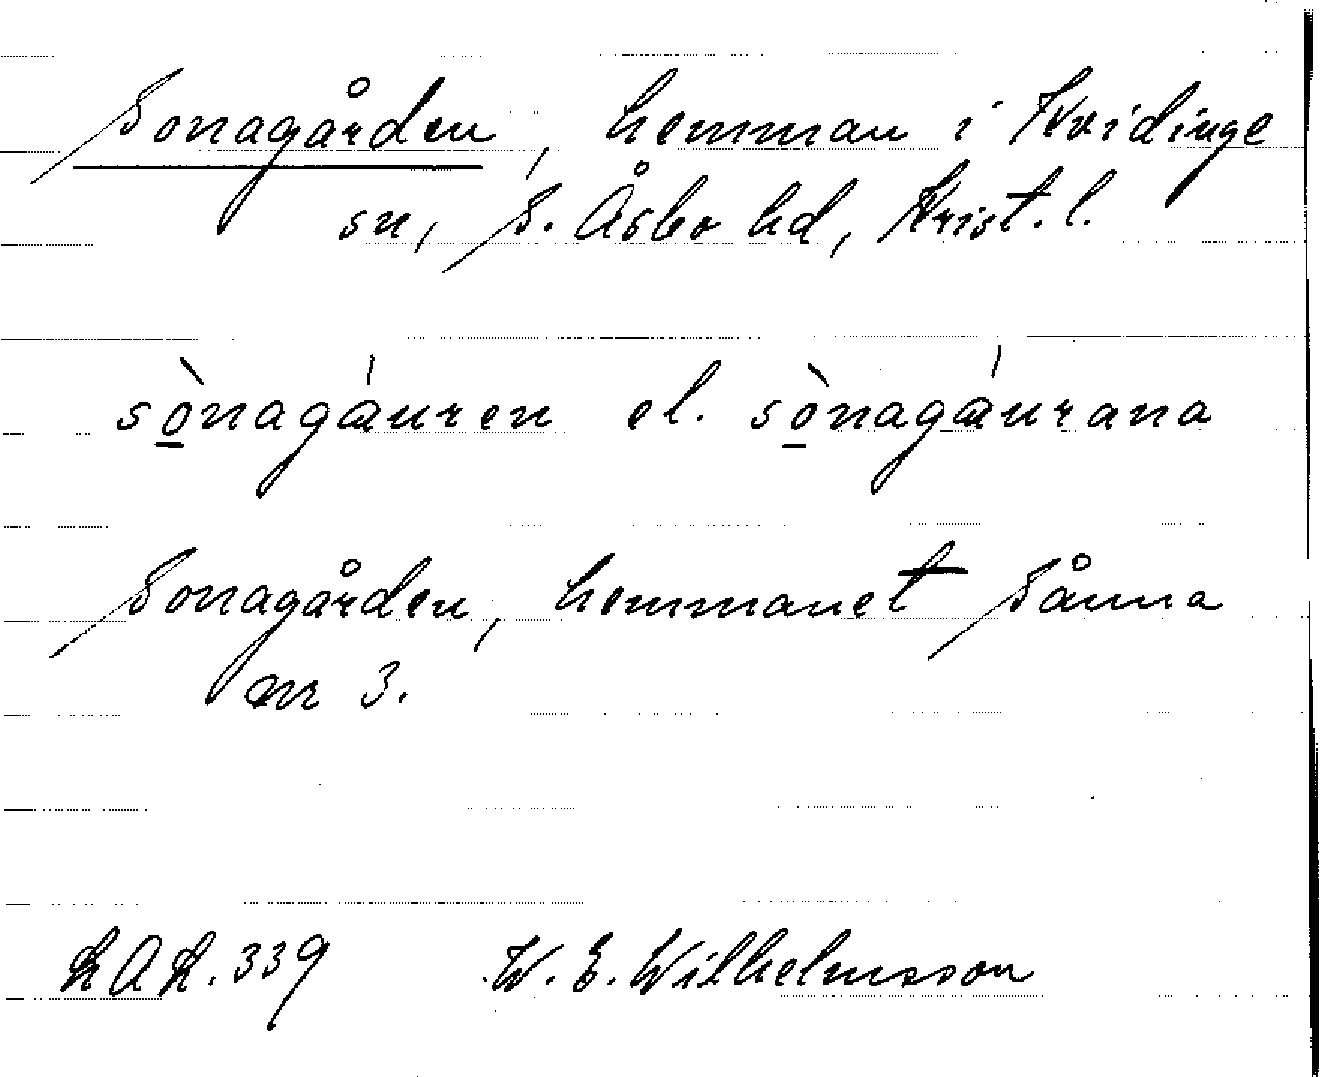 Sonagården, hemman i Kvidinge
sn, S. Åsbo hd, Krist. l.
sò̲nagáuren el. sò̲nagáurana
Sonagården, hemmanet Sånna
nr 3.
LAL. 339 W. E. Wilhelmsson